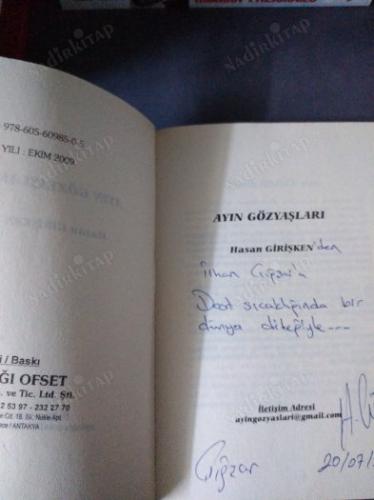 978-605-60985-0-5
YILI : EKİM 2009
i / Baskı
ĞI OFSET
. ve Tic. Ltd. Şti.
2 53 97 - 232 27 70
/ ANTAKYA
AYIN GÖZYAŞLARI
Hasan GİRİŞKEN'den
İlhan
Dost sıcaklığında bir
dünya dileğiyle---
İletişim Adresi
ayingozyaslari@gmail.com
20/07/
NadirKitap